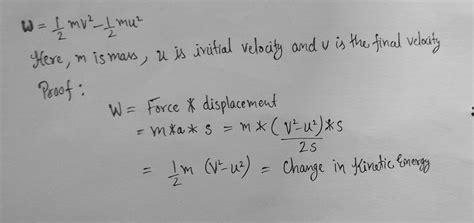 W = 1/2 mv² - 1/2 mu²
Here, m is mass, u is initial velocity and v is the final velocity
Proof :
W = Force * displacement
= m*a*s = m*(v²-u²)/2s*s
= 1/2 m (v²-u²) = Change in Kinetic Energy